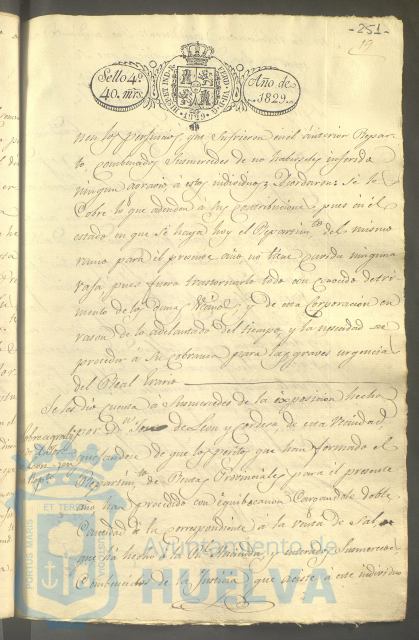 -251-
19
Sello 4º
40. mrs
Año de
1829.
1829
nen los perjuicios que sufrieron en el anterior Repar-
to, combencidos sus mercedes de no haberseles inferido
ningun agravio á estos individuos; Acordaron: Se les
Cobre lo que adeudan á sus contribuciones, pues en el
estado en que se haya hoy el Repartimto del mismo
ramo para el presente año no tiene cavida ninguna
vaja pues fuera trastornarlo todo con conocido detri-
mento de los demas Vecinos, y de esta Corporacion en
razon de lo adelantado del tiempo, y la necesidad se
proceda á su cobranza para las graves urgencias
del Real Erario
Se les dió cuenta á sus mercedes de la exposicion hecha
por Dn de Leon y Cordero de esta Vecindad,
quejandose de que los peritos que han formado el
Repartimto de Rentas Provinciales para el presente
año han procedido con equibocacion Cargandole doble
Cantidad á la correspondiente á la venta de Sal
que ha hecho á la Rl Hacienda; y enterados sus mercedes
Combencidos de la Justicia que asiste á este individuo
PORTUS MARIS
ET TERRAE
Ayuntamiento de
HUELVA